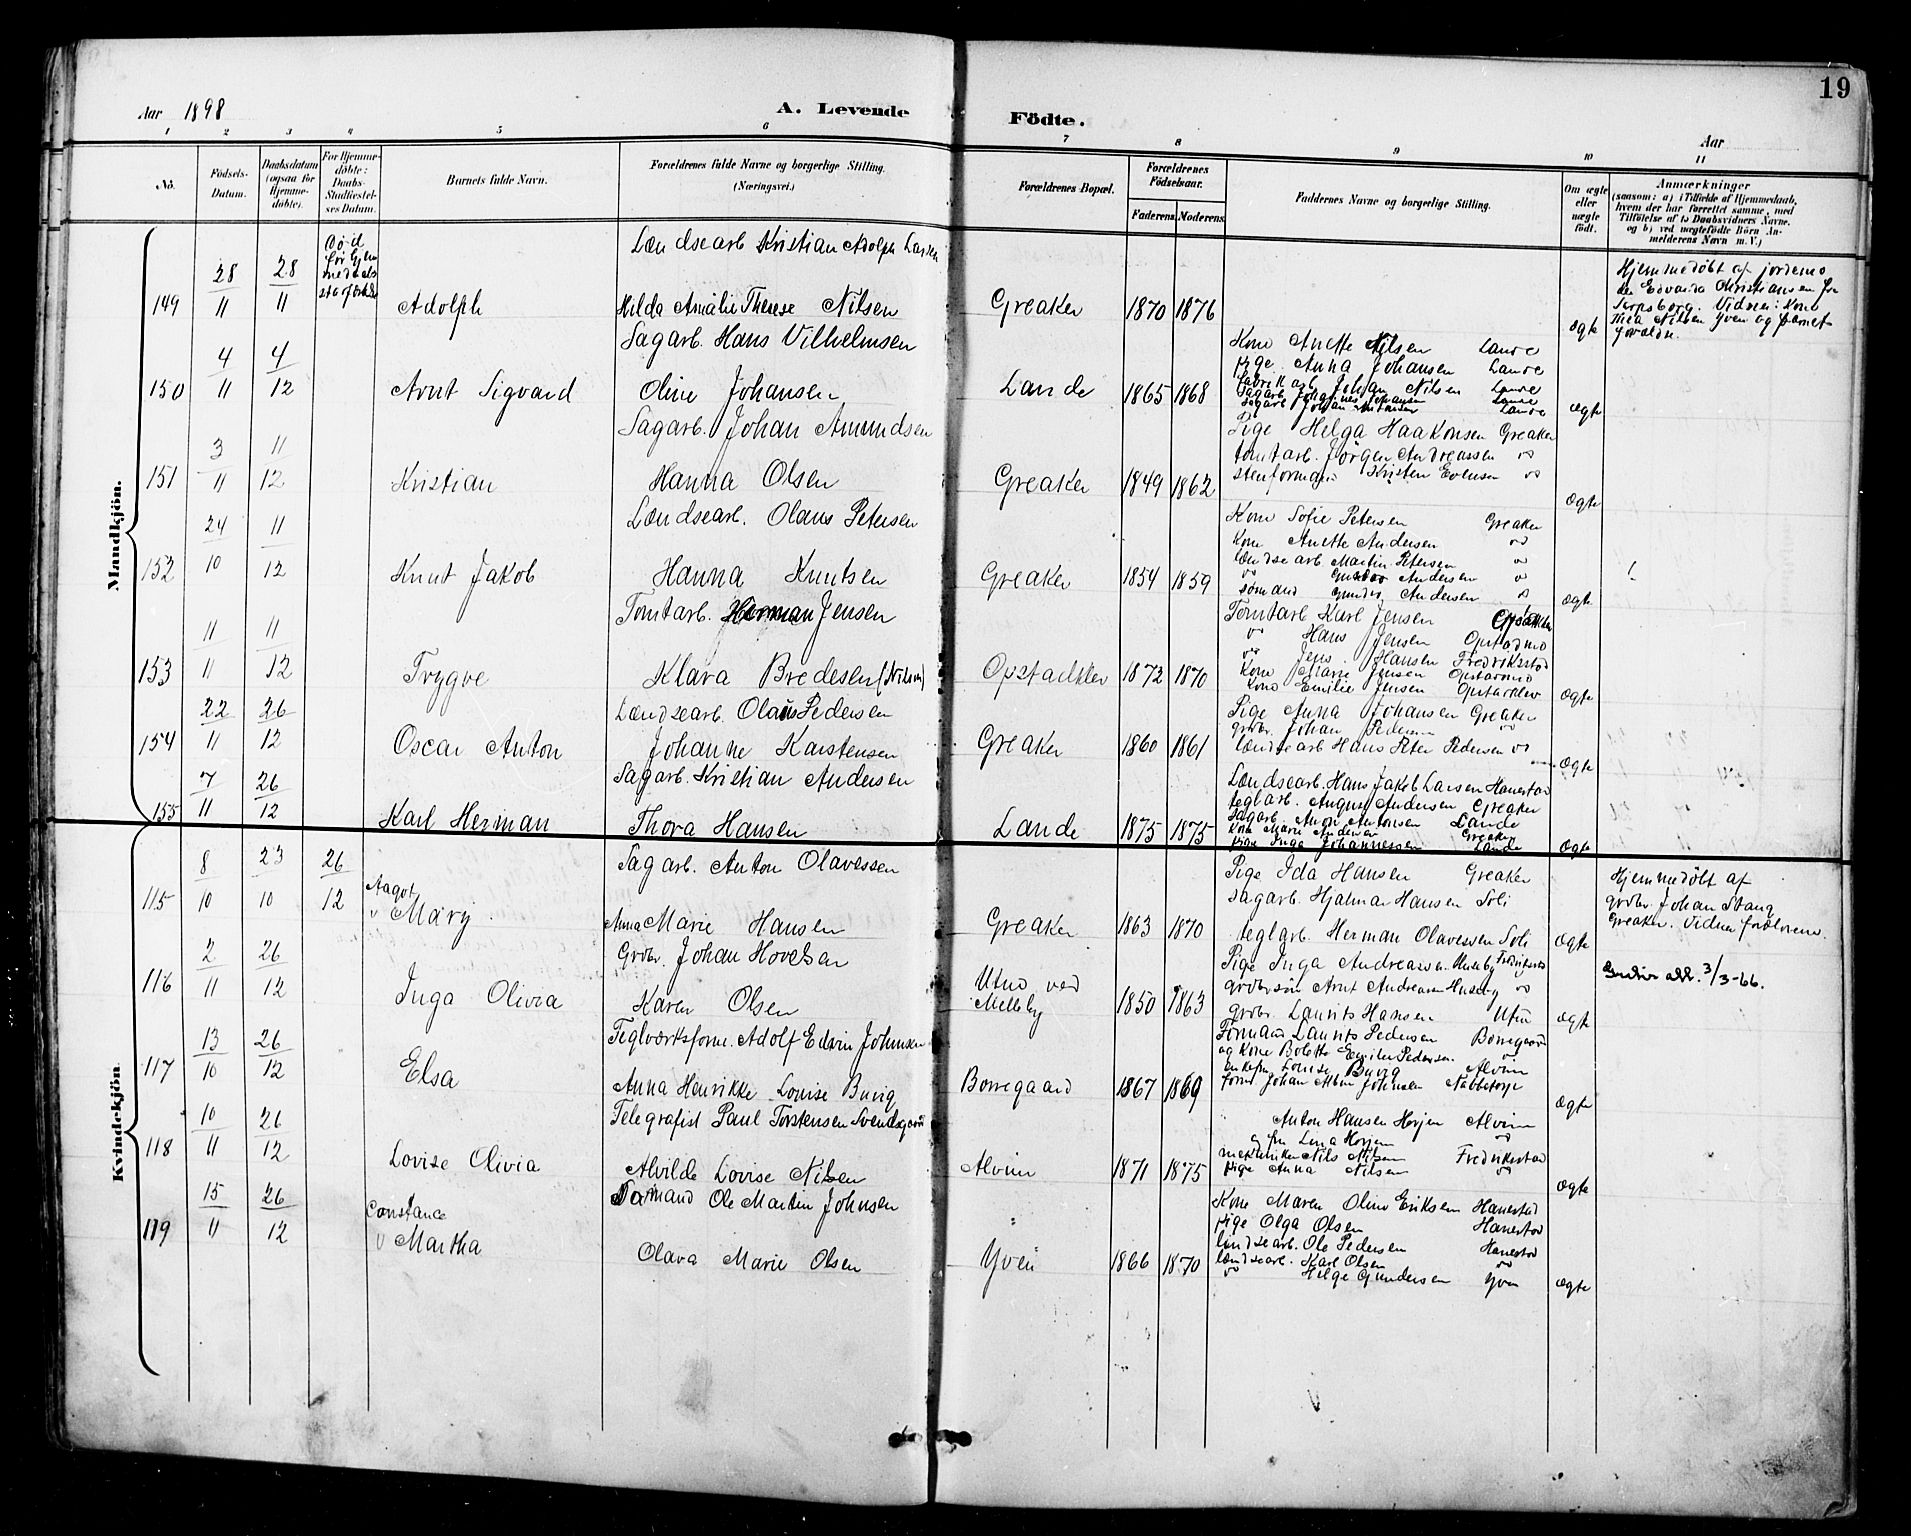 19
Aar 1898
A. Levende
Födte.
Aar
1 2 3 4 5 6 7 8 9 10 11
No.
Födsels-
Datum.
Daabsdatum
(ogsaa for
Hjemme-
döbte).
For Hjemme-
döbte:
Daabs-
Stadfæstel-
ses Datum.
Barnets fulde Navn.
Forældrenes fulde Navne og borgerlige Stilling.
(Næringsvei.)
Forældrenes Bopæl.
Forældrenes
Födselsaar.
Faderens. Moderens.
Faddernes Navne og borgerlige Stilling.
Om ægte
eller
uægte
födt.
Anmærkninger
(saasom: a) i Tilfælde af Hjemmedaab,
hvem der har forrettet samme, med
Tilföielse af to Daabsvidners Navne.
og b) ved uægtefödte Börn An-
melderens Navn m. V.)
Mandkjön.
149 28/11 28/11 Død Adolph
Lændsearb Kristian Adolph Larsen
Hilda Amalie Therese Nilsen
Greaker 1870 1876 ægte
Hjemmedøbt af jordemo
der Edvarda Christiansen fra
Sarpsborg. Vidner: Kone
Thea Nilsen Yven og barnets
forældre.
150 4/11 4/12 Arnt Sigvard
Sagarb. Hans Vilhelmsen
Oline Johansen
Lande 1865 1868
Kone Anette Nilsen Lande
pige Anna Johansen Lande
fabrikarb Johan Nilsen Lande
Sagarb Johannes Johansen Lande
Sagarb Johan Antonsen Lande
ægte
151 3/11 11/12 Kristian
Sagarb. Johan Amundsen
Hanna Olsen
Greaker 1849 1862
Pige Helga Haakonsen Greaker
tomtarb. Jørgen Andreassen do
stenformand Kristen Evensen do
ægte
152 24/10 11/12 Knut Jakob
Lændsearb. Olaus Petersen
Hanna Knutsen
Greaker 1854 1859
Kone Sofie Petersen Greaker
Kone Anette Andersen do
lændsearb Martin Petersen do
do Gustav Andersen do
sømand Andersen do
ægte
153 11/11 11/12 Trygve
Tomtarb. Herman Jensen
Klara Bredesen (Nilsen)
Opstadklev 1872 1870
Tomtarb Karl Jensen
do Hans Jensen Opstadmo
do Jens Hansen Fredrikstad
Kone Marie Jensen Opstadmo
Kone Emilie Jensen Opstadklev
ægte
154 22/11 26/12 Oscar Anton
Lændsearb. Olaus Pedersen
Johanne Karstensen
Greaker 1860 1861
Pige Anna Johansen Greaker
grdbr. Johan Pedersen do
lændsearb Hans Peter Pedersen do
ægte
155 7/11 26/12 Karl Herman
Sagarb. Kristian Andersen
Thora Hansen
Lande 1875 1875
Lændsearb. Hans Jakob Larsen Hanestad
teglarb. August Andersen Greaker
Sagarb. Anton Antonsen Lande
Kone Marie Andersen Greaker
pige Inga Johannessen Lande
ægte
Kvindekjön.
115 8/10 23/10 26/12 Aagot
v Mary
Sagarb. Anton Olavessen
Anna Marie Hansen
Greaker 1863 1870
Pige Ida Hansen Greaker
Sagarb. Hjalmar Hansen Soli
teglarb. Herman Olavessen Soli
ægte
Hjemmedøbt af
grdbr. Johan Stang
Greaker. Vidner forældrene.
116 2/11 26/12 Inga Olivia
Grdbr. Johan Hovelsen
Karen Olsen
Utno ved
Melleby
1850 1863
Pige Inga Andreassen Huseby
grdbrsøn Arnt Andreassen Huseby do
grdbr. Laurits Hansen Utno
ægte
3/3-66.
117 13/10 26/12 Elsa
Teglværksform. Adolf Edvin Johnsen
Anna Henrikke Louise Buvig
Borregaard 1867 1869
Formand Laurits Pedersen Borregaard
og Kone Bolette Emilie Pedersen do
Enkefru Louise Buvig Alvim
form. Johan Albin Johnsen Nabbetorp
ægte
118 10/11 26/12 Lovise Olivia
Telegrafist Paul Torstensen Svendsgaard
Alvilde Lovise Nilsen
Alvim 1871 1875
Anton Hansen Horjen Alvim
og fru Lina Horjen do
maskiniker Nils Nilsen Fredrikstad
pige Anna Nilsen do
ægte
119 15/11 26/12 Constance
v Martha
Sømand Ole Martin Johnsen
Olava Marie Olsen
Yven 1866 1870
Kone Maren Oline Eriksen Hanestad
pige Olga Olsen Hanestad
lændsearb. Ole Pedersen Hanestad
lændsearb. Karl Olsen do
do Helge Gundersen Yven
ægte